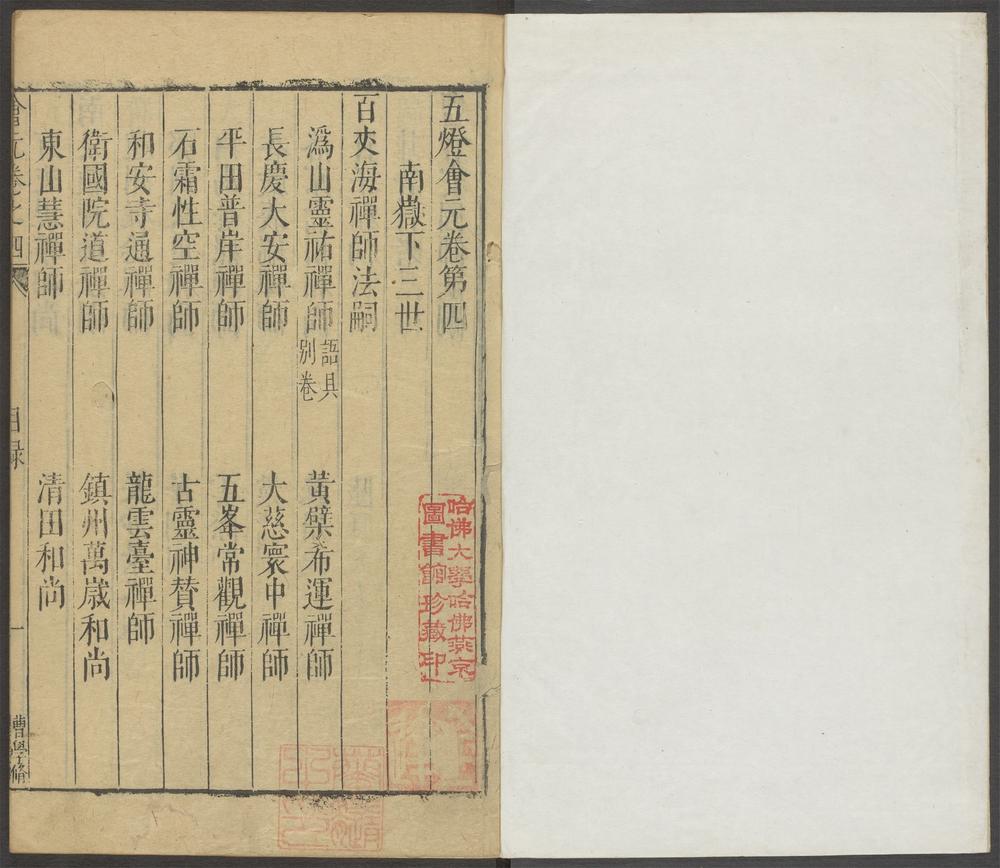 五燈會元卷第四
南嶽下三世
百丈海禪師法嗣
溈山靈祐禪師 語具別卷 黃檗希運禪師
長慶大安禪師 大慈寰中禪師
平田普岸禪師 五峯常觀禪師
石霜性空禪師 古靈神贊禪師
和安寺通禪師 龍雲臺禪師
衛國院道禪師 鎮州萬歲和尚
東山慧禪師 清田和尚
會元卷之四 目録 一
哈佛大學哈佛燕京
圖書館珍藏印